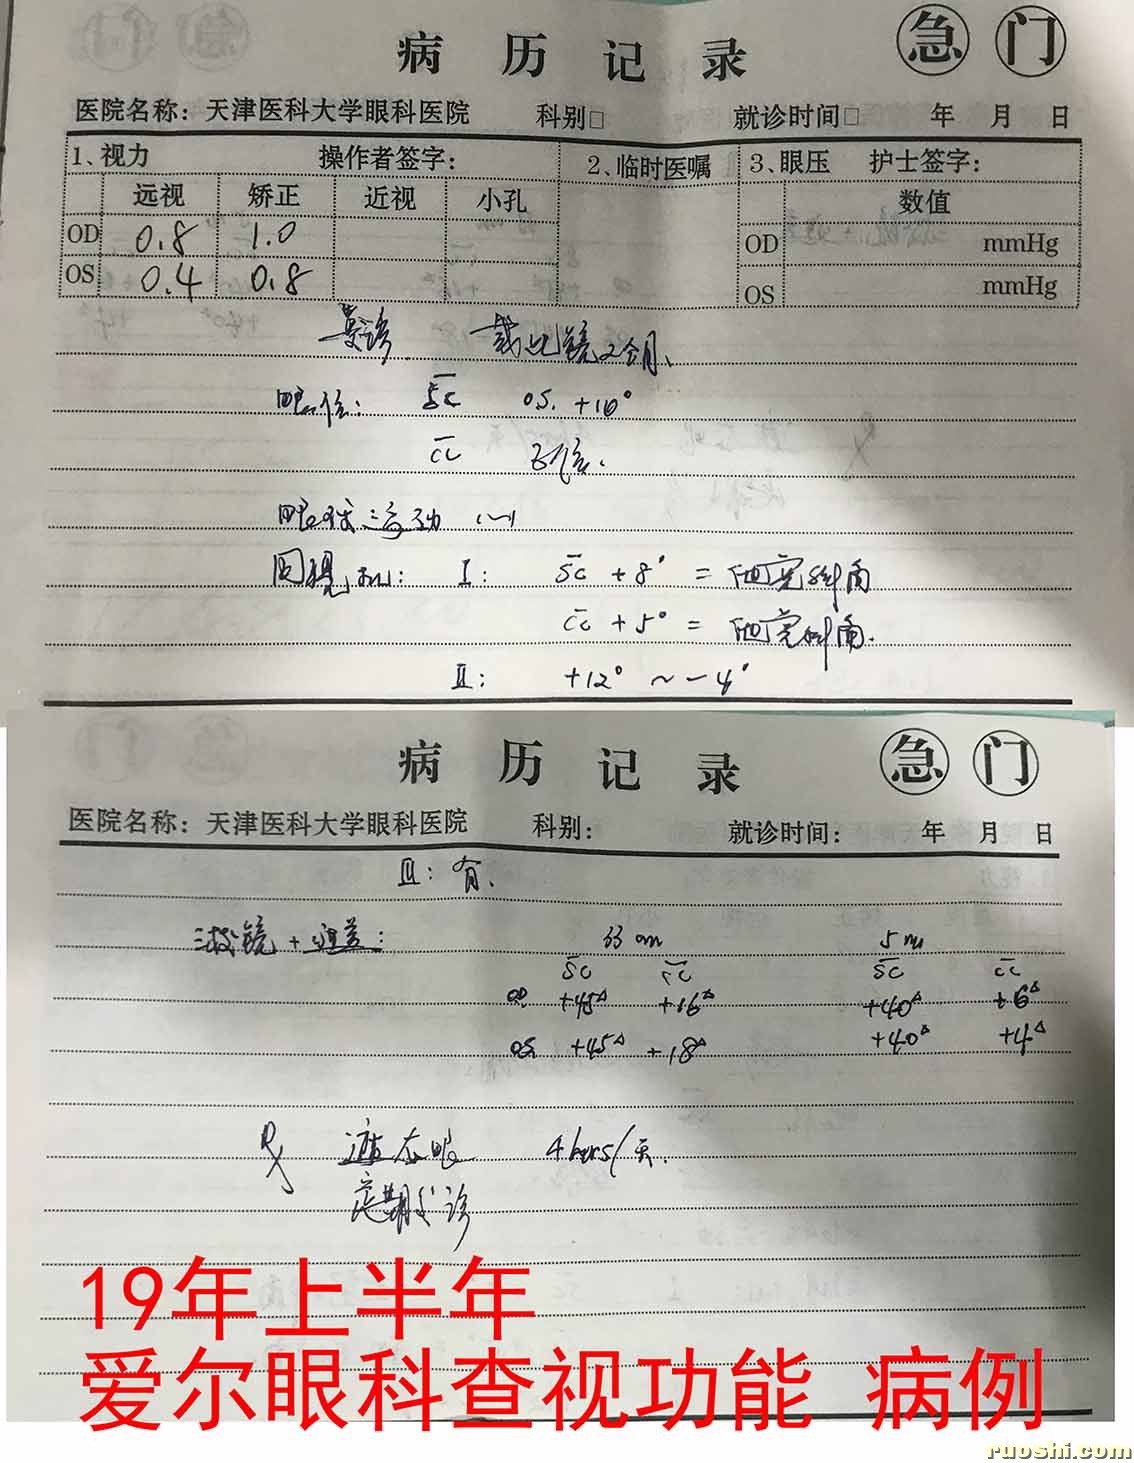 病历记录 急 门
医院名称：天津医科大学眼科医院 科别□ 就诊时间□ 年 月 日
1、视力 操作者签字： 2、临时医嘱 3、眼压 护士签字：
远视 矫正 近视 小孔 数值
OD 0.8 1.0 OD mmHg
OS 0.4 0.8 OS mmHg
复诊 戴此镜2个月、
眼位： sc OS. +10°
cc 正位.
眼球运动 (一)
同视机： I： sc +8° = 他觉斜角
cc +5° = 他觉斜角.
II： +12° ~ -4°
病历记录 急 门
医院名称：天津医科大学眼科医院 科别： 就诊时间： 年 月 日
III：有、
三棱镜+遮盖： 33cm 5m
sc cc sc cc
OD +45△ +16△ +40△ +6△
OS +45△ +18△ +40△ +4△
Rx 遮右眼 4hrs/天.
定期复诊
19年上半年
爱尔眼科查视功能 病例
ruoshi.com